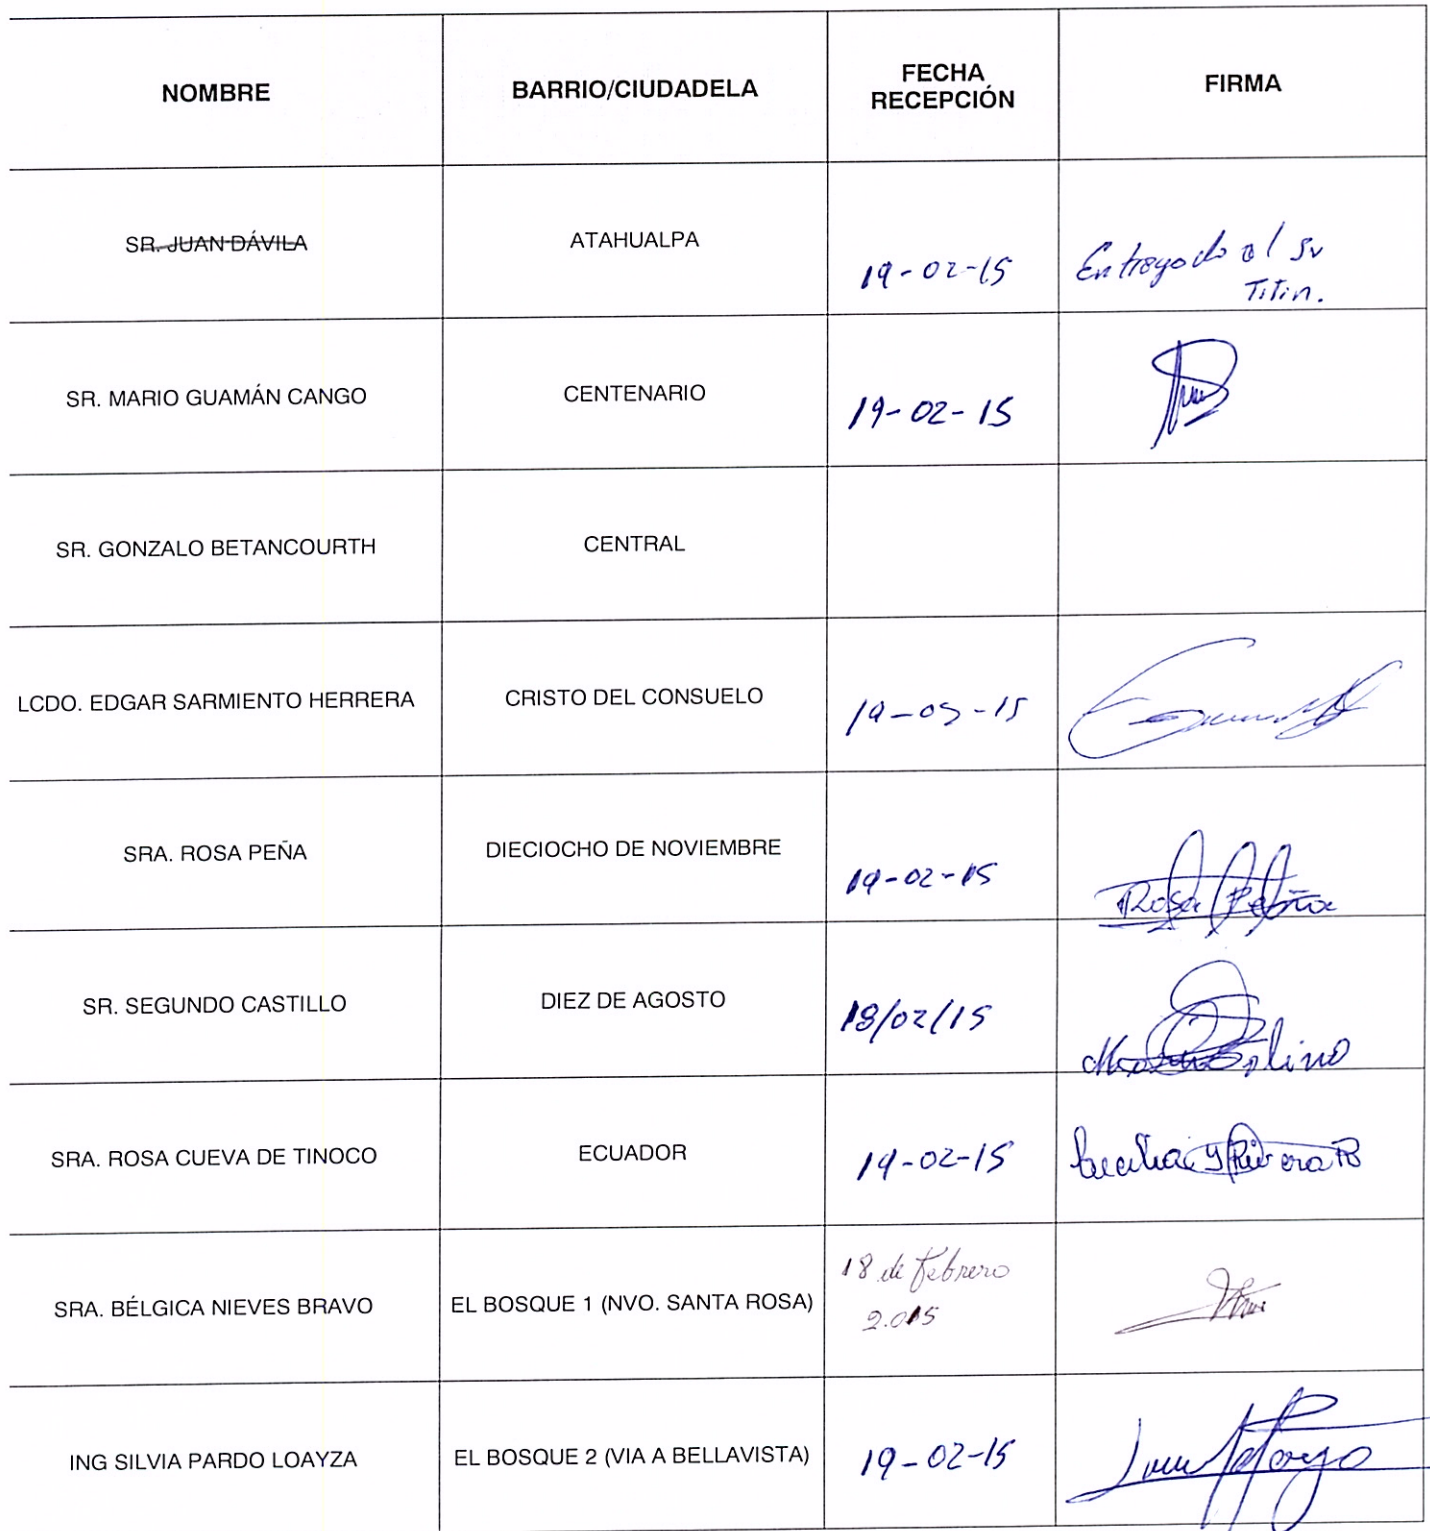 NOMBRE
BARRIO/CIUDADELA
FECHA
RECEPCIÓN
FIRMA
SR. JUAN DÁVILA
ATAHUALPA
19-02-15
Entregado al Sr
Titin.
SR. MARIO GUAMÁN CANGO
CENTENARIO
19-02-15
SR. GONZALO BETANCOURTH
CENTRAL
LCDO. EDGAR SARMIENTO HERRERA
CRISTO DEL CONSUELO
SRA. ROSA PEÑA
DIECIOCHO DE NOVIEMBRE
19-02-15
Rosa Peña
SR. SEGUNDO CASTILLO
DIEZ DE AGOSTO
18/02/15
SRA. ROSA CUEVA DE TINOCO
ECUADOR
19-02-15
Cecilia Y Rivera R
SRA. BÉLGICA NIEVES BRAVO
EL BOSQUE 1 (NVO. SANTA ROSA)
18 de Febrero
2.015
ING SILVIA PARDO LOAYZA
EL BOSQUE 2 (VIA A BELLAVISTA)
19-02-15